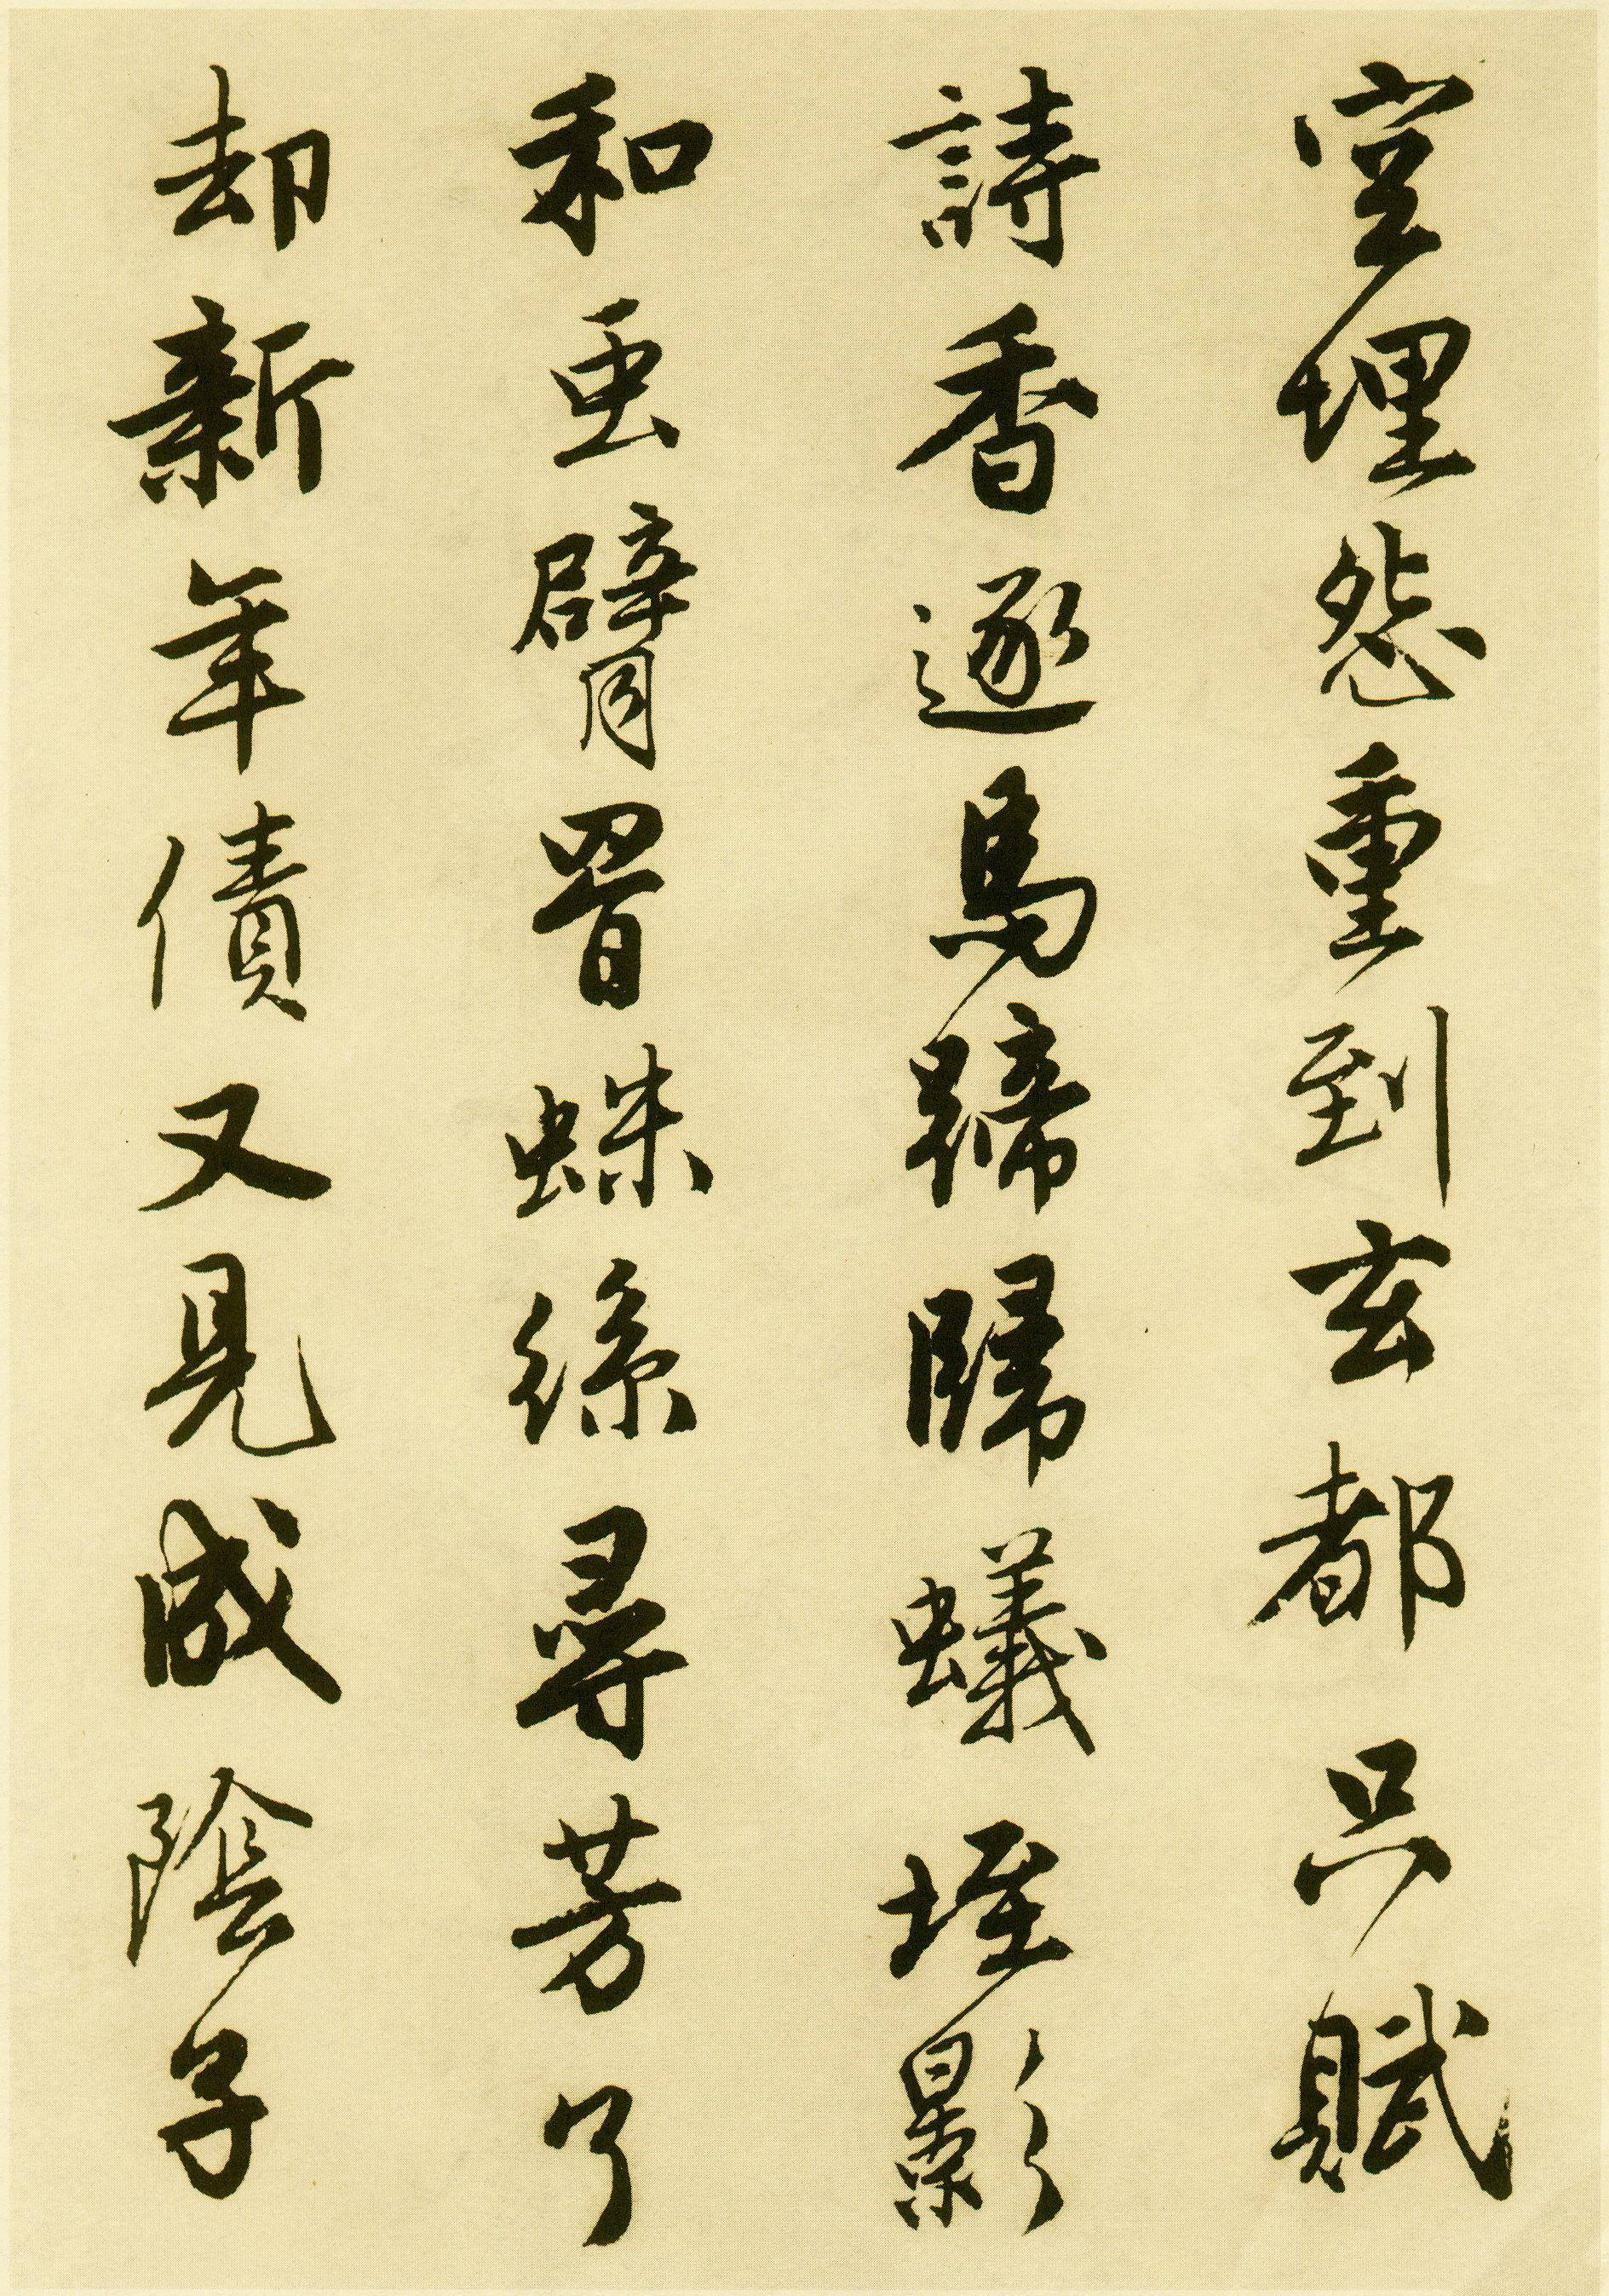 空埋怨重到玄都只賦
詩香逐馬蹄歸蟻垤影
和虫臂罥蛛絲尋芳了
却新年債又見成陰子